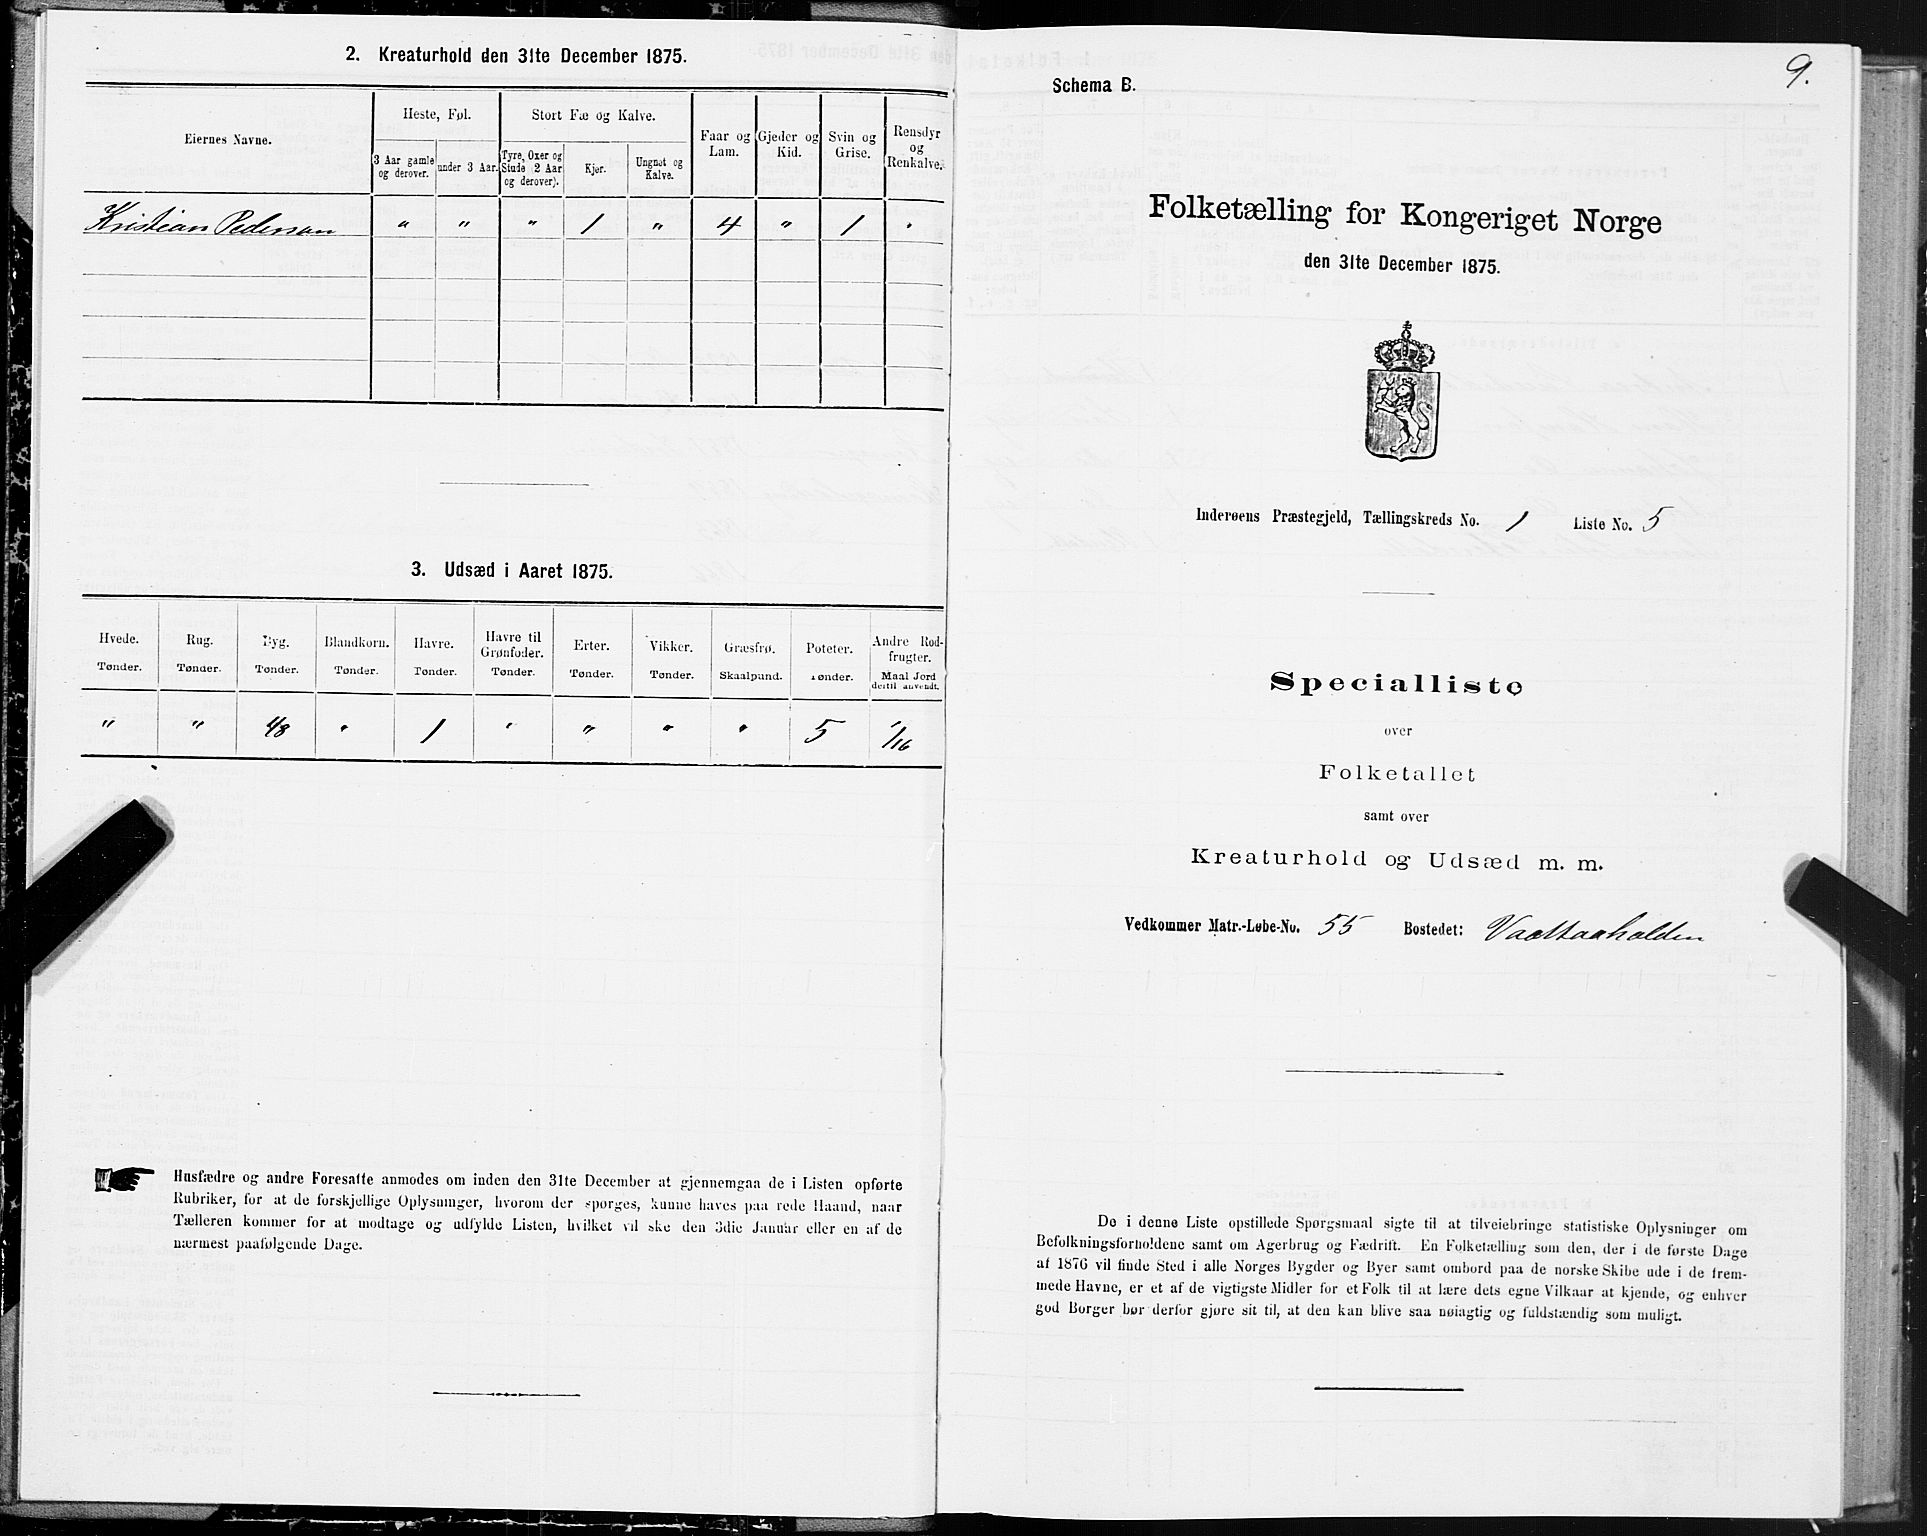 2. Kreaturhold den 31te December 1875.
Eiernes Navne.
Heste, Føl.
Stort Fæ og Kalve.
Faar og Lam.
Gjeder og Kid.
Svin og Grise.
Rensdyr og Renkalve.
3 Aar gamle og derover.
under 3 Aar.
Tyre, Oxer og Stude (2 Aar og derover).
Kjør.
Ungnøt og Kalve.
Kristian Pedersen " " " 1 " 4 " 1 "
3. Udsæd i Aaret 1875.
Hvede. Rug. Byg. Blandkorn. Havre. Havre til Grønfoder. Erter. Vikker. Græsfrø. Poteter. Andre Rodfrugter.
Tønder. Tønder. Tønder. Tønder. Tønder. Tønder. Tønder. Tønder. Skaalpund. Tønder. Maal Jord dertil anvendt.
" " 4/8 " 1 " " " " 5 1/16
Husfædre og andre Foresatte anmodes om inden den 31te December at gjennemgaa de i Listen opførte
Rubriker, for at de forskjellige Oplysninger, hvorom der spørges, kunne haves paa rede Haand, naar
Tælleren kommer for at modtage og udfylde Listen, hvilket vil ske den 3die Januar eller en af de
nærmest paafølgende Dage.
9.
Schema B.
Folketælling for Kongeriget Norge
den 31te December 1875.
Inderøens Præstegjeld, Tællingskreds No. 1 Liste No. 5
Specialliste
over
Folketallet
samt over
Kreaturhold og Udsæd m. m.
Vedkommer Matr.-Løbe-No. 55 Bostedet: Vadtaaholden
De i denne Liste opstillede Spørgsmaal sigte til at tilveiebringe statistiske Oplysninger om
Befolkningsforholdene samt om Agerbrug og Fædrift. En Folketælling som den, der i de første Dage
af 1876 vil finde Sted i alle Norges Bygder og Byer samt ombord paa de norske Skibe ude i de frem-
mede Havne, er et af de vigtigste Midler for et Folk til at lære dets egne Vilkaar at kjende, og enhver
god Borger bør derfor gjøre sit til, at den kan blive saa nøiagtig og fuldstændig som muligt.